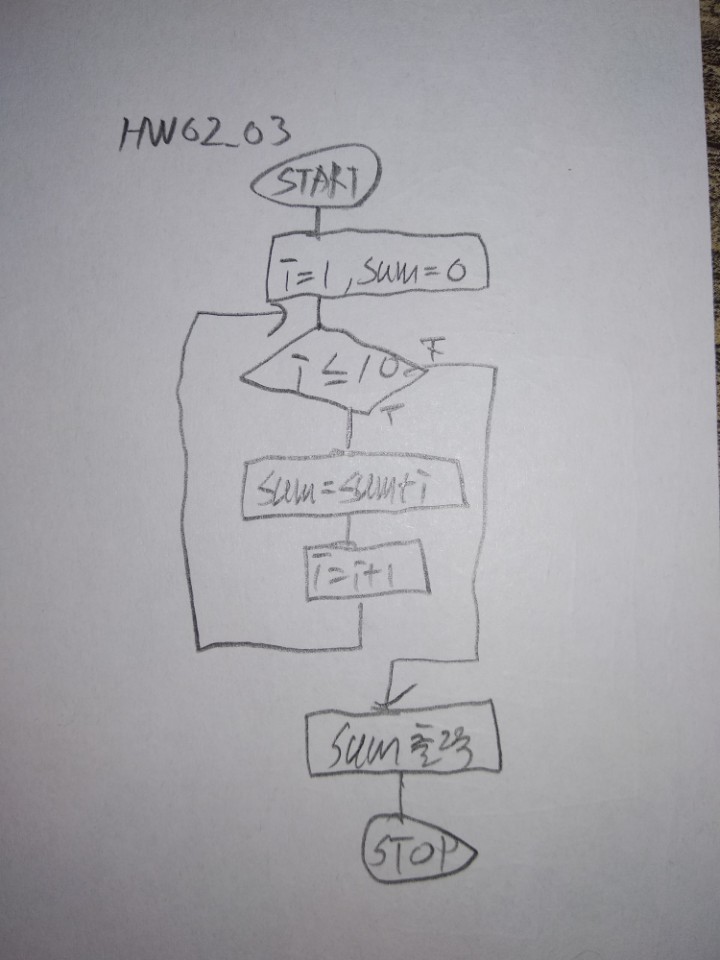 HW02_03
START
i=1, sum=0
i≤10
F
T
sum=sum+i
i=i+1
sum 출력
STOP